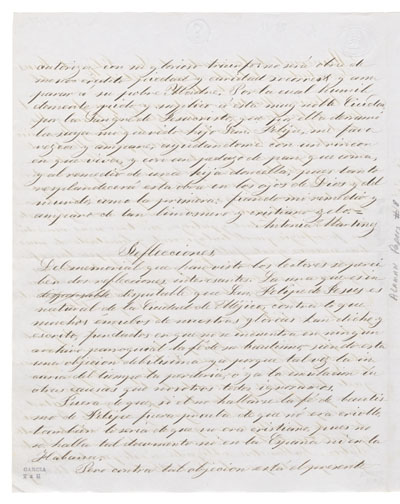 autoriza con su glorioso transpireno será obra de
nuevo crédito piedad y caridad socorrer y am
parar á su pobre Madre. Por lo cual humil
demente pido y suplico á esta muy noble Ciudad
por la Sangre de Jesucristo, y a por ella derramó
la suya mi querido hijo San Felipe, me favo
rezca y ampare, ayudándome con un rincon
en que viva, y con un pedazo de pan que coma,
y al remedio de una hija doncella; pues tanto
resplandecerá esta obra en los ojos de Dios y del
mundo como la primera; fiando mi remedio y
amparo de tan limosnero y cristiano zelo =
Antonia Martinez
Reflecciones
Del memorial que han visto los lectores se perci
ben dos reflecciones interesantes. La una que es in
disputable y que San Felipe de Jesus es
natural de la Ciudad de Méjico, contra lo que
muchos envidiosos de nuestras glorias han dicho y
escrito, fundados en que no se encuentra en ningun
archivo parroquial la fé de su bautismo, siendo esta
una objecion debilísima ya porque tal vez la in
curia del tiempo la perdería, ó ya la
otras causas que nosotros todos ignoramos.
Fuera de que, si el no hallarse la fé de bautis
mo de Felipe fuera prueba de que no era criollo
tambien lo sería de que no era cristiano, pues no
se halla tal documento ni en la España ni en la
Habana.
Pero contra tal objecion está el presente
GARCIA